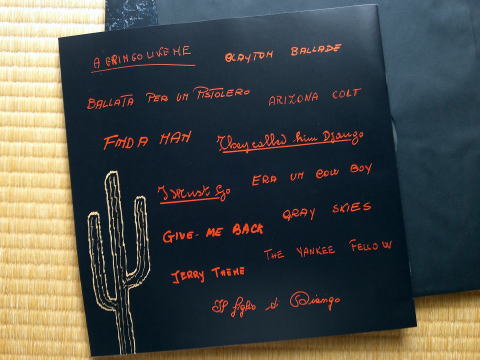 A GRINGO LIKE ME
CLAYTON BALLADE
BALLATA PER UN PISTOLERO
ARIZONA COLT
FIND A MAN
They called him Django
I Must Go
ERA UN COW BOY
GIVE ME BACK
GRAY SKIES
JERRY THEME
THE YANKEE FELLOW
Il figlio di Django